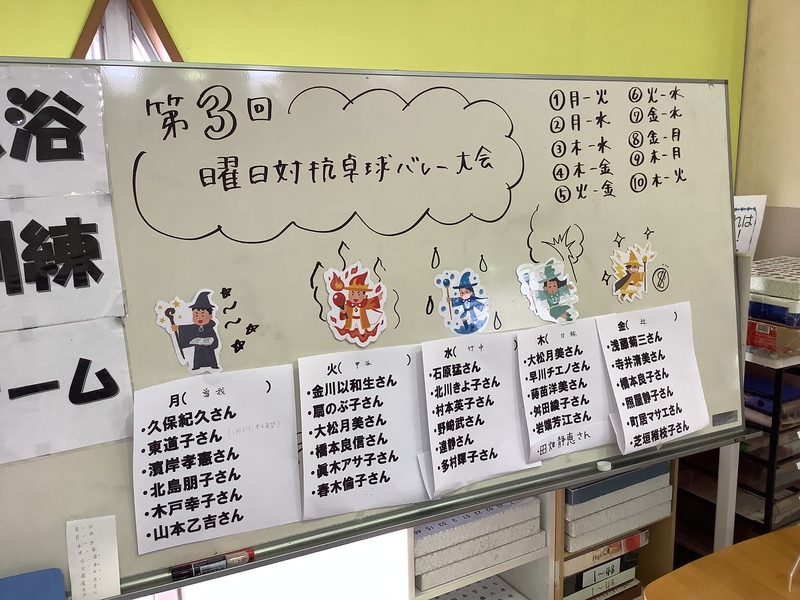 浴
訓練
ーム
第3回
曜日対抗卓球バレー大会
①月-火
②月-水
③木-水
④木-金
⑤火-金
⑥火-水
⑦金-水
⑧金-月
⑨木-月
⑩木-火
月( )
・久保紀久さん
・東道子さん
・濱岸孝憲さん
・北島朋子さん
・木戸幸子さん
・山本乙吉さん
火( )
・金川以和生さん
・扇のぶ子さん
・大松月美さん
・橋本良信さん
・眞木アサ子さん
・春木倫子さん
水(竹中)
・石原猛さん
・北川きよ子さん
・村本英子さん
・野崎武さん
・達静さん
・多村輝子さん
木( )
・大松月美さん
・早川チエノさん
・蒔苗洋美さん
・舛田綾子さん
・岩端芳江さん
・田畑静恵さん
金( )
・浅藤菊三さん
・寺井清美さん
・橋本良子さん
・照屋静子さん
・町居マサエさん
・芝垣稚枝子さん
れは
!
1~48